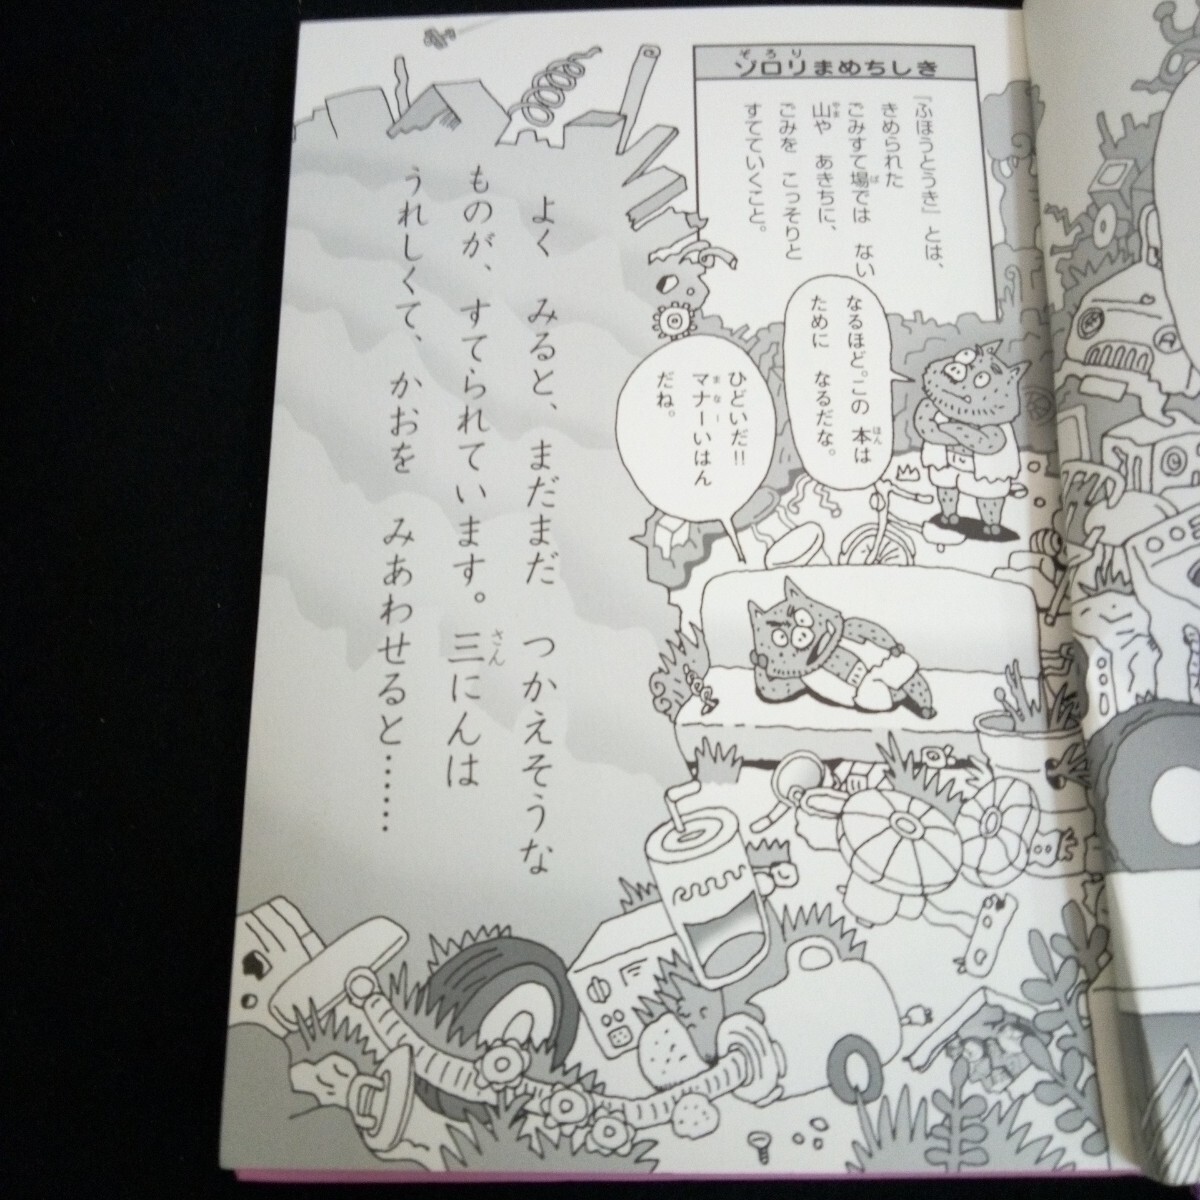 ゾロリまめちしき
『ふほうとうき』とは、
きめられた
ごみすて場では ない
山や あきちに、
ごみを こっそりと
すてていくこと。
なるほど。この 本は
ために なるだな。
ひどいだ!!
マナーいはん
だね。
よく みると、まだまだ つかえそうな
ものが、すてられています。三にんは
うれしくて、かおを みあわせると……